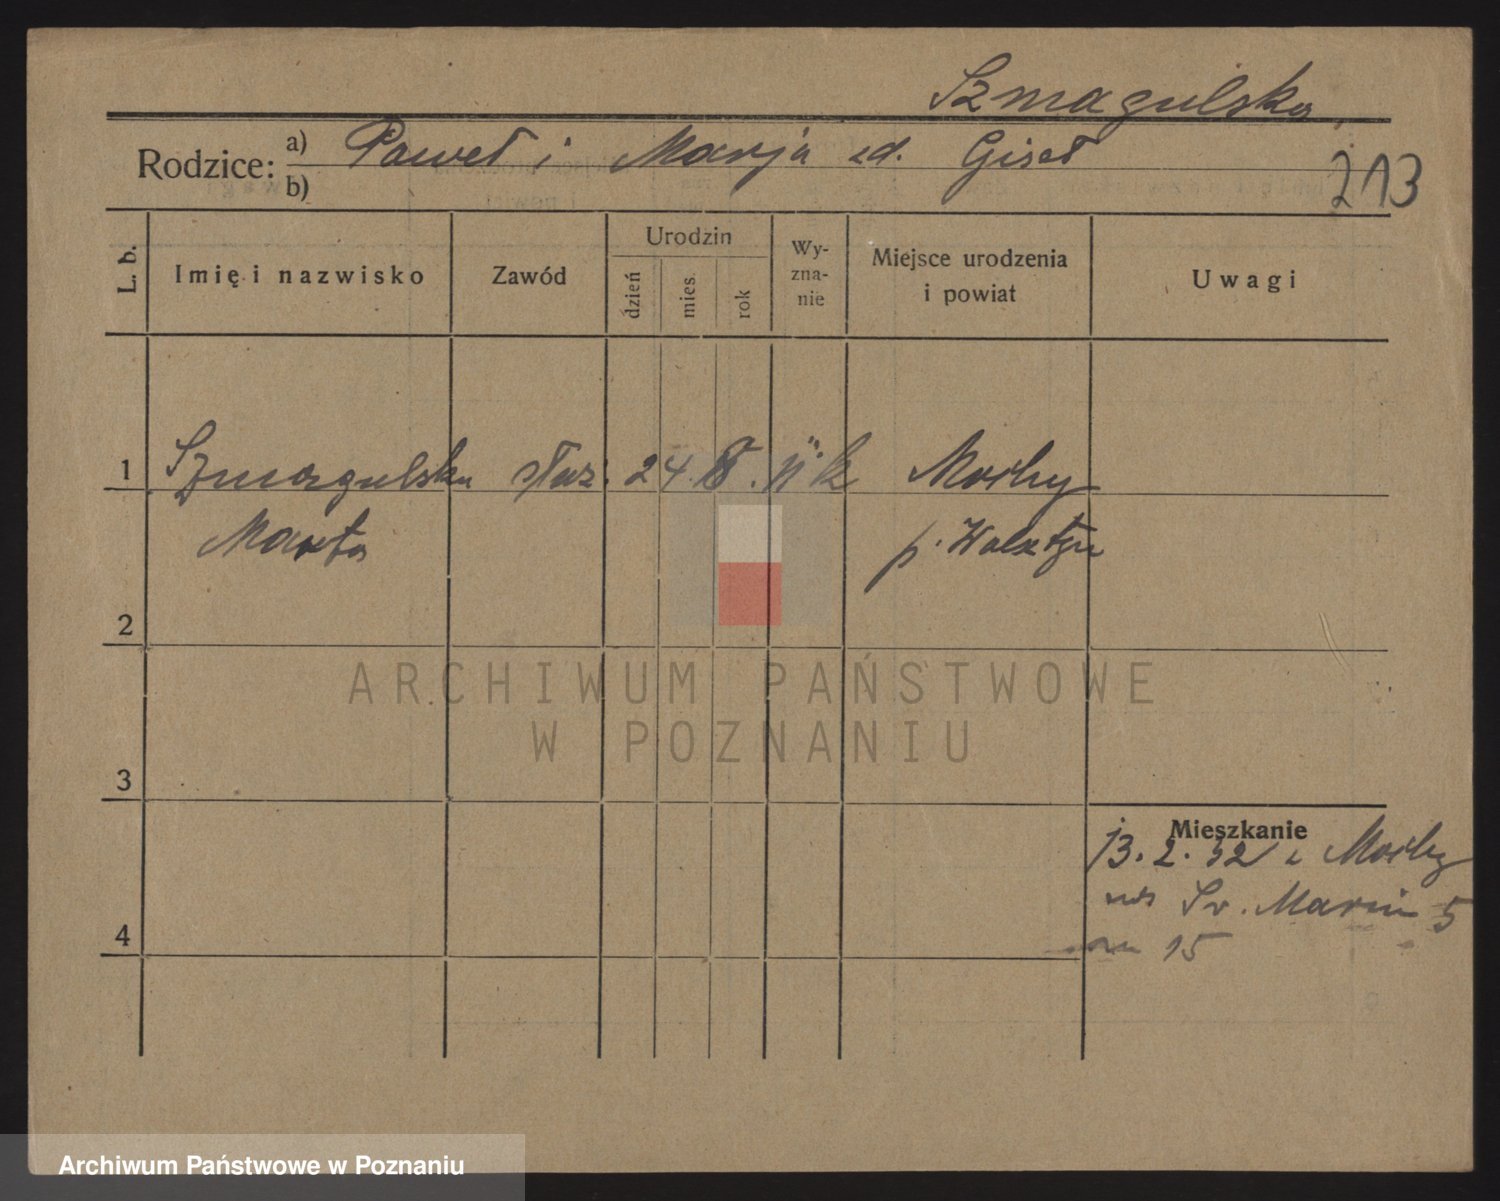 Szmagulska
Rodzice: a) Paweł i Marja zd. Giseł
b)
213
L. b. Imię i nazwisko Zawód Urodzin dzień mies. rok Wy-zna-nie Miejsce urodzenia i powiat Uwagi
1 Szmagulska służ. 24. 11 k Mochy
Marta p. Wolsztyn
2
3
Mieszkanie
13. 2. 32 z Mochy
Św. Marcin 5
4
m 15
ARCHIWUM PAŃSTWOWE
W POZNANIU
Archiwum Państwowe w Poznaniu